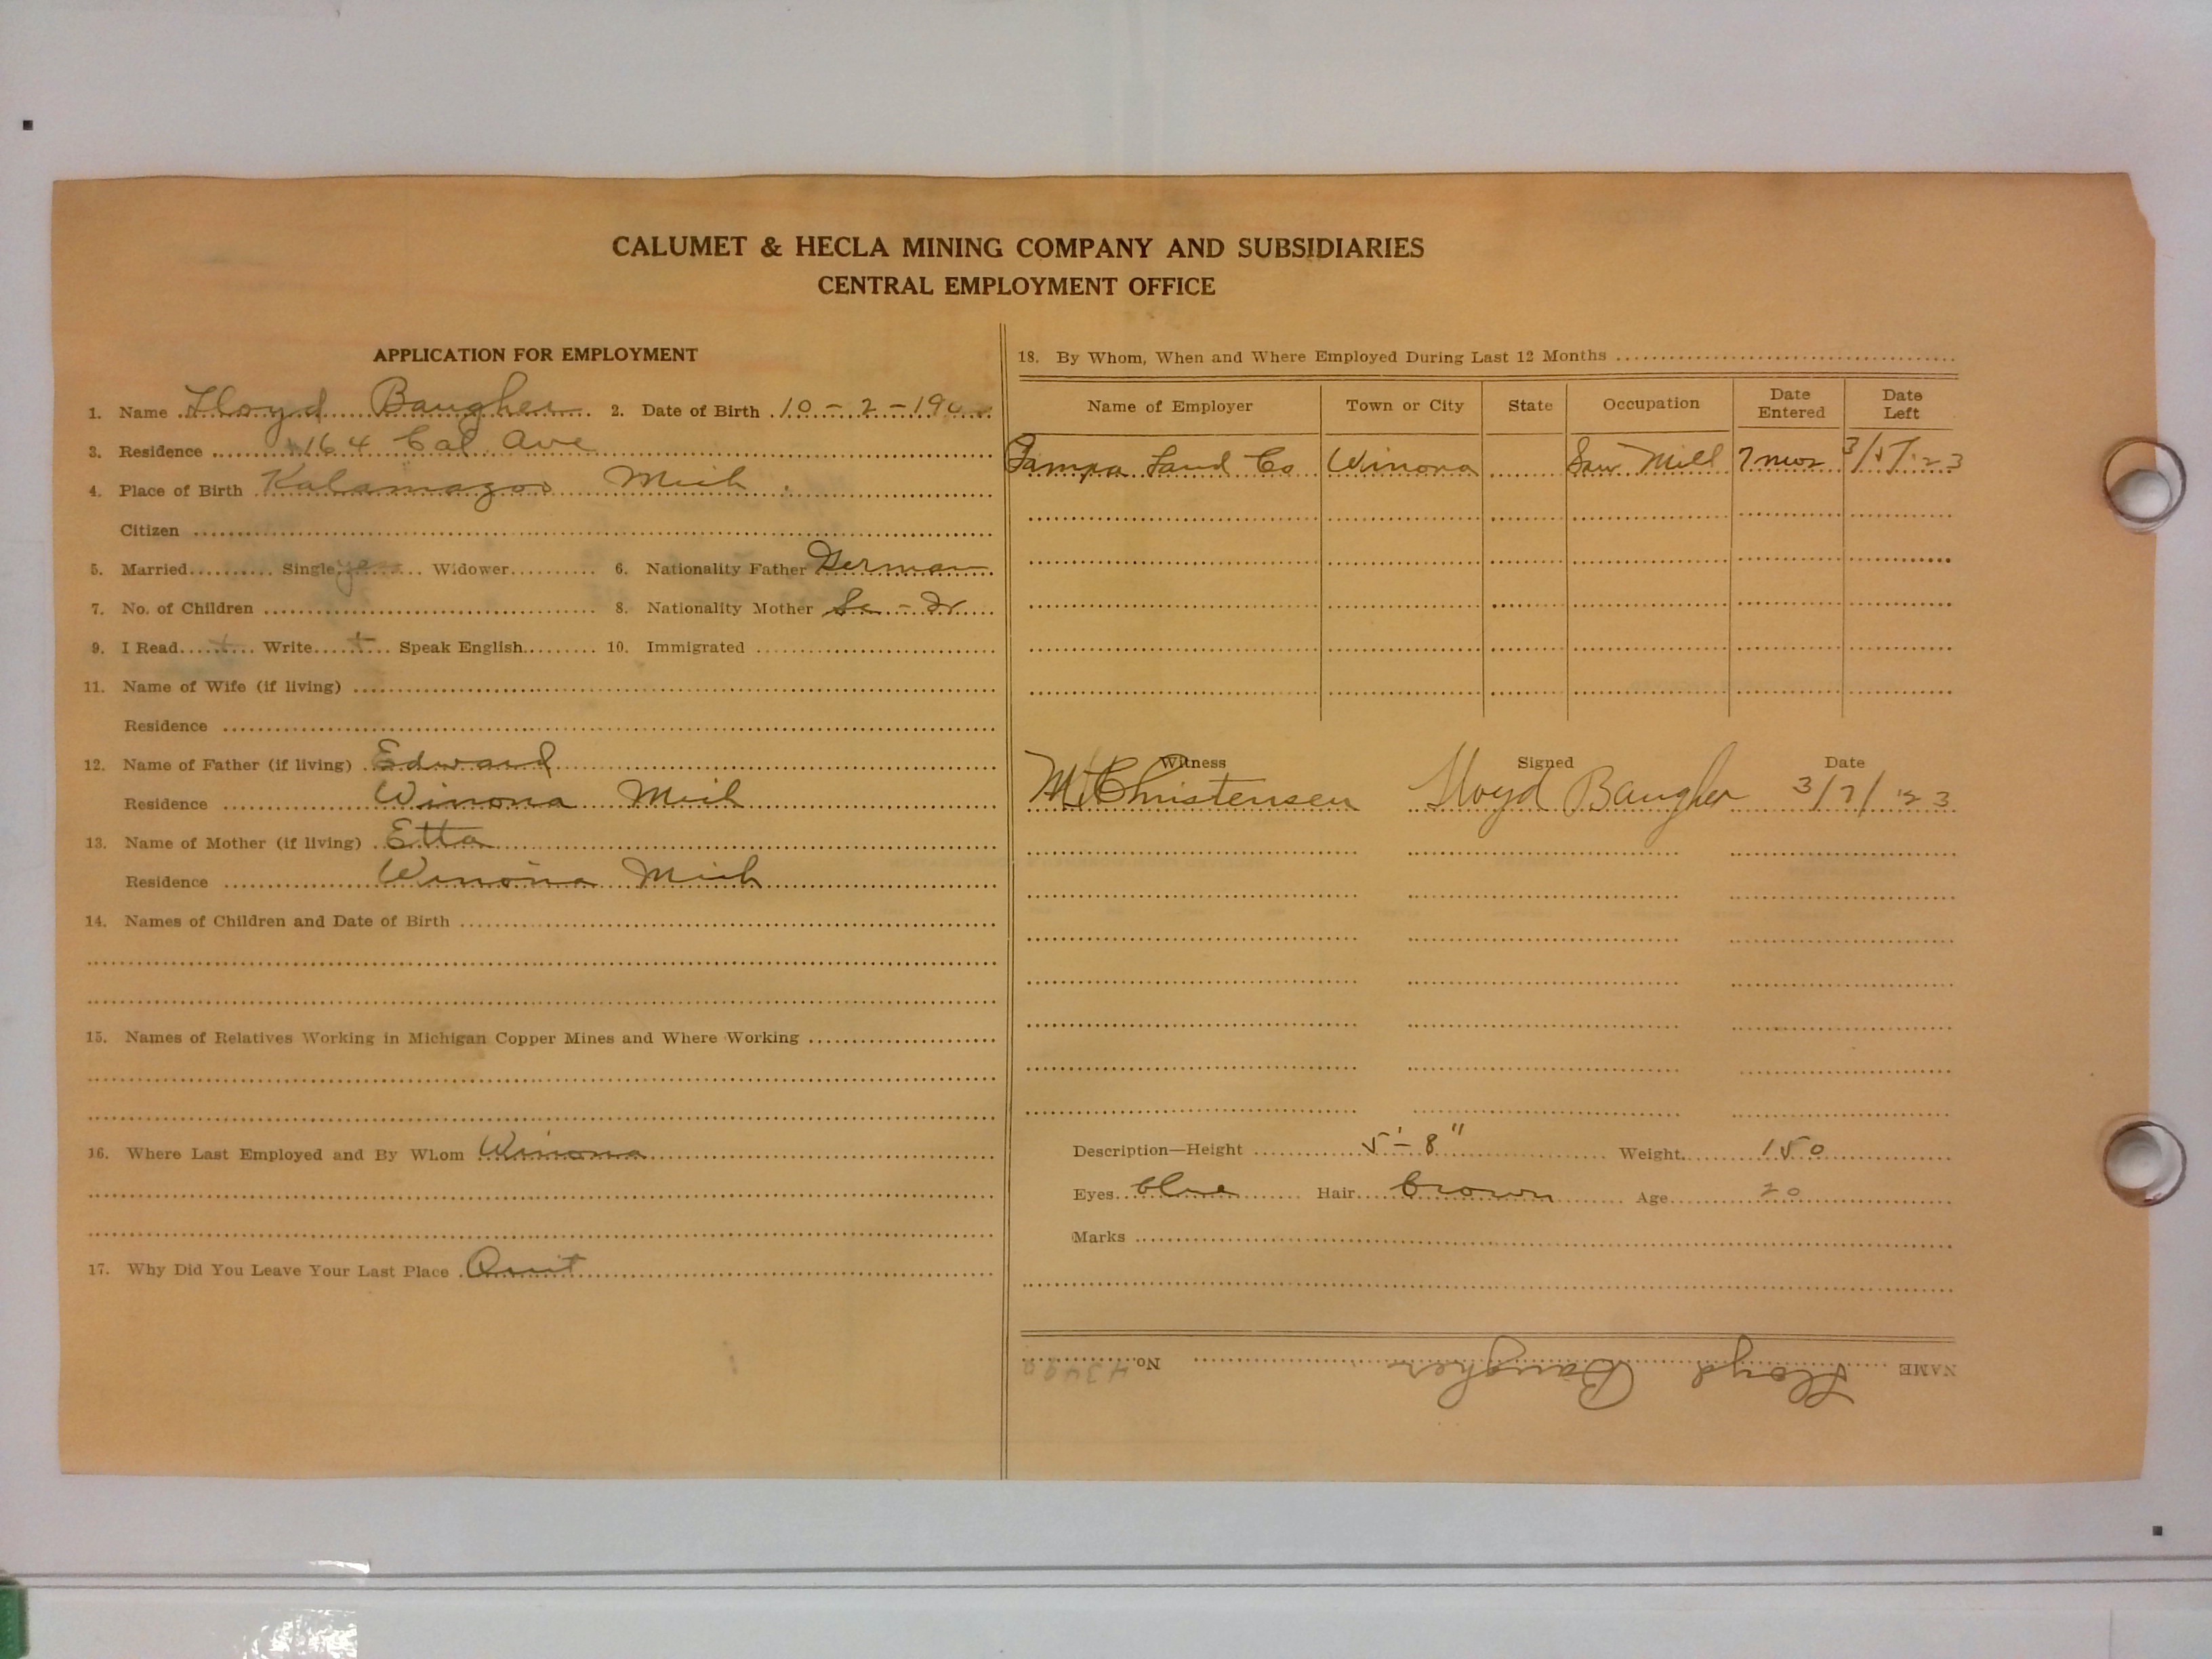 CALUMET & HECLA MINING COMPANY AND SUBSIDIARIES
CENTRAL EMPLOYMENT OFFICE
APPLICATION FOR EMPLOYMENT
1. Name Floyd Baugher 2. Date of Birth 10-2-190
3. Residence 164 Cal Ave
4. Place of Birth Kalamazoo Mich
Citizen
5. Married Single yes Widower 6. Nationality Father German
7. No. of Children 8. Nationality Mother
9. I Read + Write + Speak English 10. Immigrated
11. Name of Wife (if living)
Residence
12. Name of Father (if living) Edward
Residence Winona Mich
13. Name of Mother (if living) Etta
Residence Winona Mich
14. Names of Children and Date of Birth
15. Names of Relatives Working in Michigan Copper Mines and Where Working
16. Where Last Employed and By Whom Winona
17. Why Did You Leave Your Last Place Quit
18. By Whom, When and Where Employed During Last 12 Months
Name of Employer Town or City State Occupation Date Entered Date Left
Land Co Winona Saw Mill 7 mos 3/5/'23
Witness Signed Date
Christensen Floyd Baugher 3/7/'23
Description—Height 5'-8" Weight 150
Eyes blue Hair brown Age 20
Marks
NAME Floyd Baugher No.